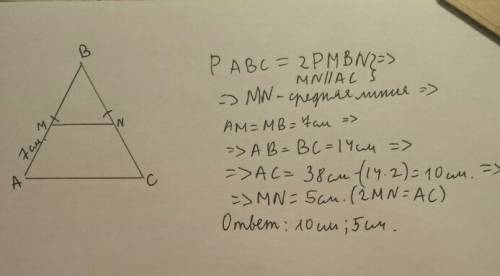 B
M
N
7см.
A
C
P ABC = 2PMBN } =>
MN//AC }
=> MN - средняя линия =>
AM = MB = 7см =>
=> AB = BC = 14см =>
=> AC = 38см - (14·2) = 10см. =>
=> MN = 5см. (2MN = AC)
Ответ: 10см; 5см.